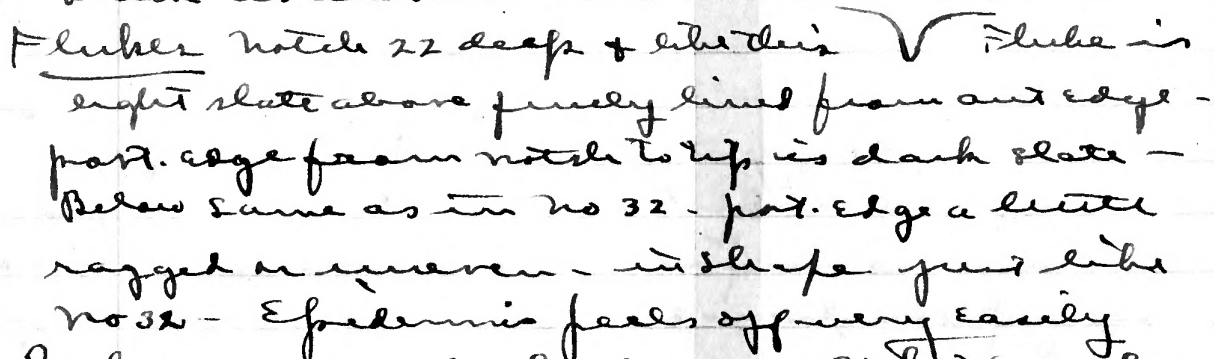 Flukes notch 22 deep & like this Fluke is
light slate above finely lined from ant edge -
post. edge from notch to tip is dark slate -
Below same as in No 32 - post. edge a little
ragged or uneven - in shape just like
No 32 - Epidermis peels off very easily